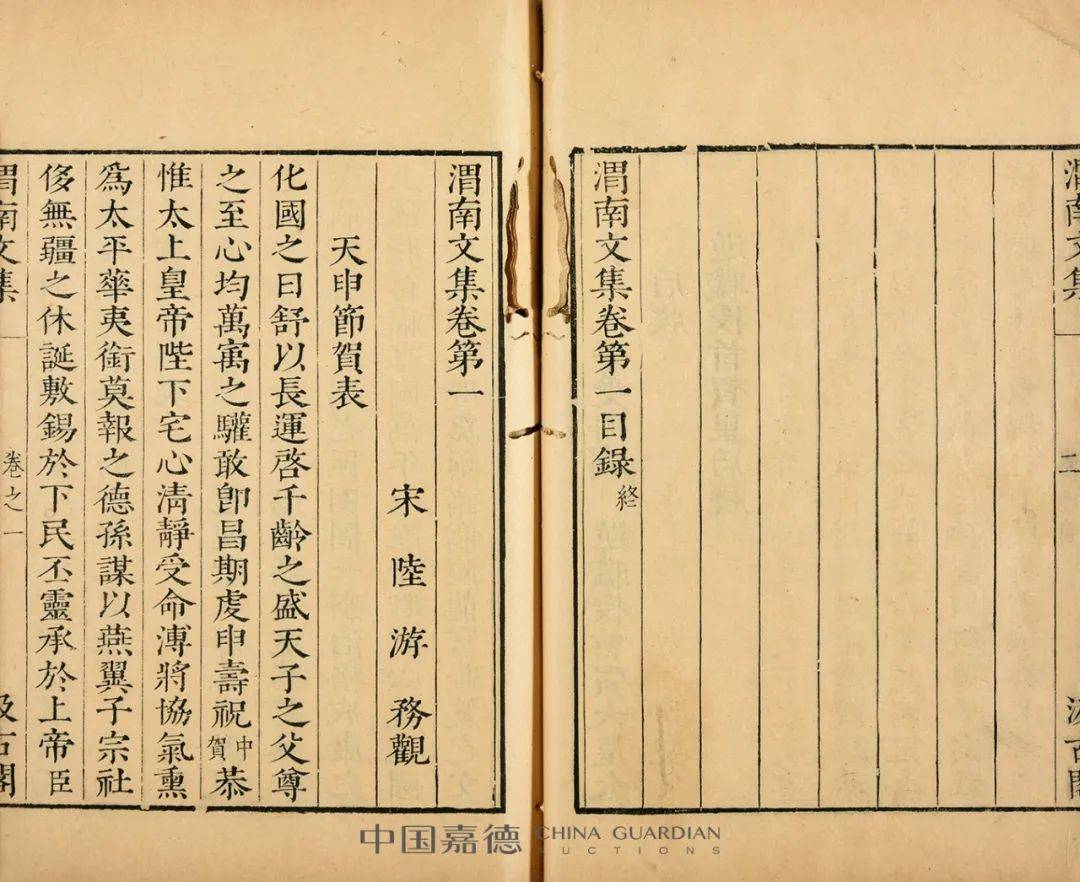 渭南文集
二
汲古閣
渭南文集卷第一目錄終
渭南文集卷第一
宋陸游務觀
天申節賀表
化國之日舒以長運啓千齡之盛天子之父尊
之至心均萬㝢之驩敢卽昌期虔申壽祝中賀恭
惟太上皇帝陛下宅心淸靜受命溥將協氣熏
爲太平華夷銜莫報之德孫謀以燕翼子宗社
侈無疆之休誕敷錫於下民丕靈承於上帝臣
渭南文集
卷之一
汲古閣
中国嘉德 CHINA GUARDIAN
AUCTIONS